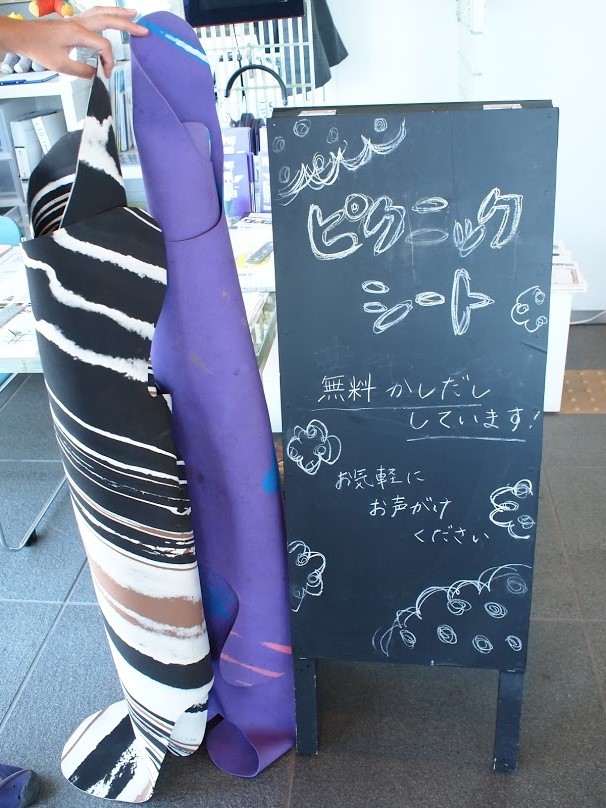 ピクニック
シート
無料かしだし
しています!
お気軽に
お声がけ
ください